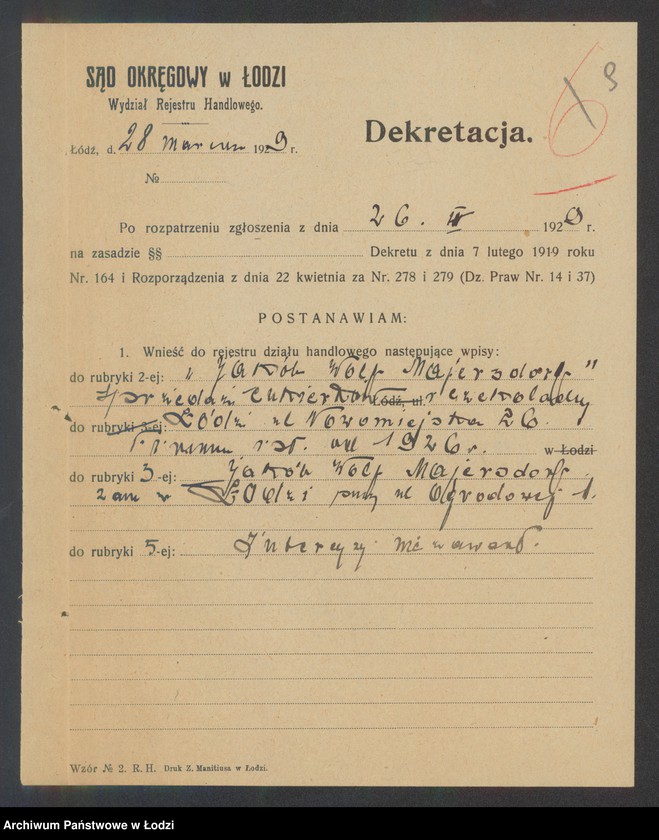 SĄD OKRĘGOWY w ŁODZI
Wydział Rejestru Handlowego.
Łódź, d. 28 marca 1929 r.
Dekretacja.
№
Po rozpatrzeniu zgłoszenia z dnia 26. III 1929 r.
na zasadzie §§ Dekretu z dnia 7 lutego 1919 roku
Nr. 164 i Rozporządzenia z dnia 22 kwietnia za Nr. 278 i 279 (Dz. Praw Nr. 14 i 37)
POSTANAWIAM:
1. Wnieść do rejestru działu handlowego następujące wpisy:
do rubryki 2-ej: „Jakób Wolf Majersdorf"
sprzedaż cukierków i czekolady
Łódź, ul.
do rubryki 3-ej: Łódź ul Nowomiejska 26.
Firma ist. od 1926 r. w Łodzi
do rubryki 3-ej: Jakób Wolf Majersdorf
zam w Łodzi przy ul Ogrodowej 1.
do rubryki 5-ej: Intercyzy nie zawarł.
Wzór № 2. R. H. Druk Z. Manitiusa w Łodzi.
Archiwum Państwowe w Łodzi